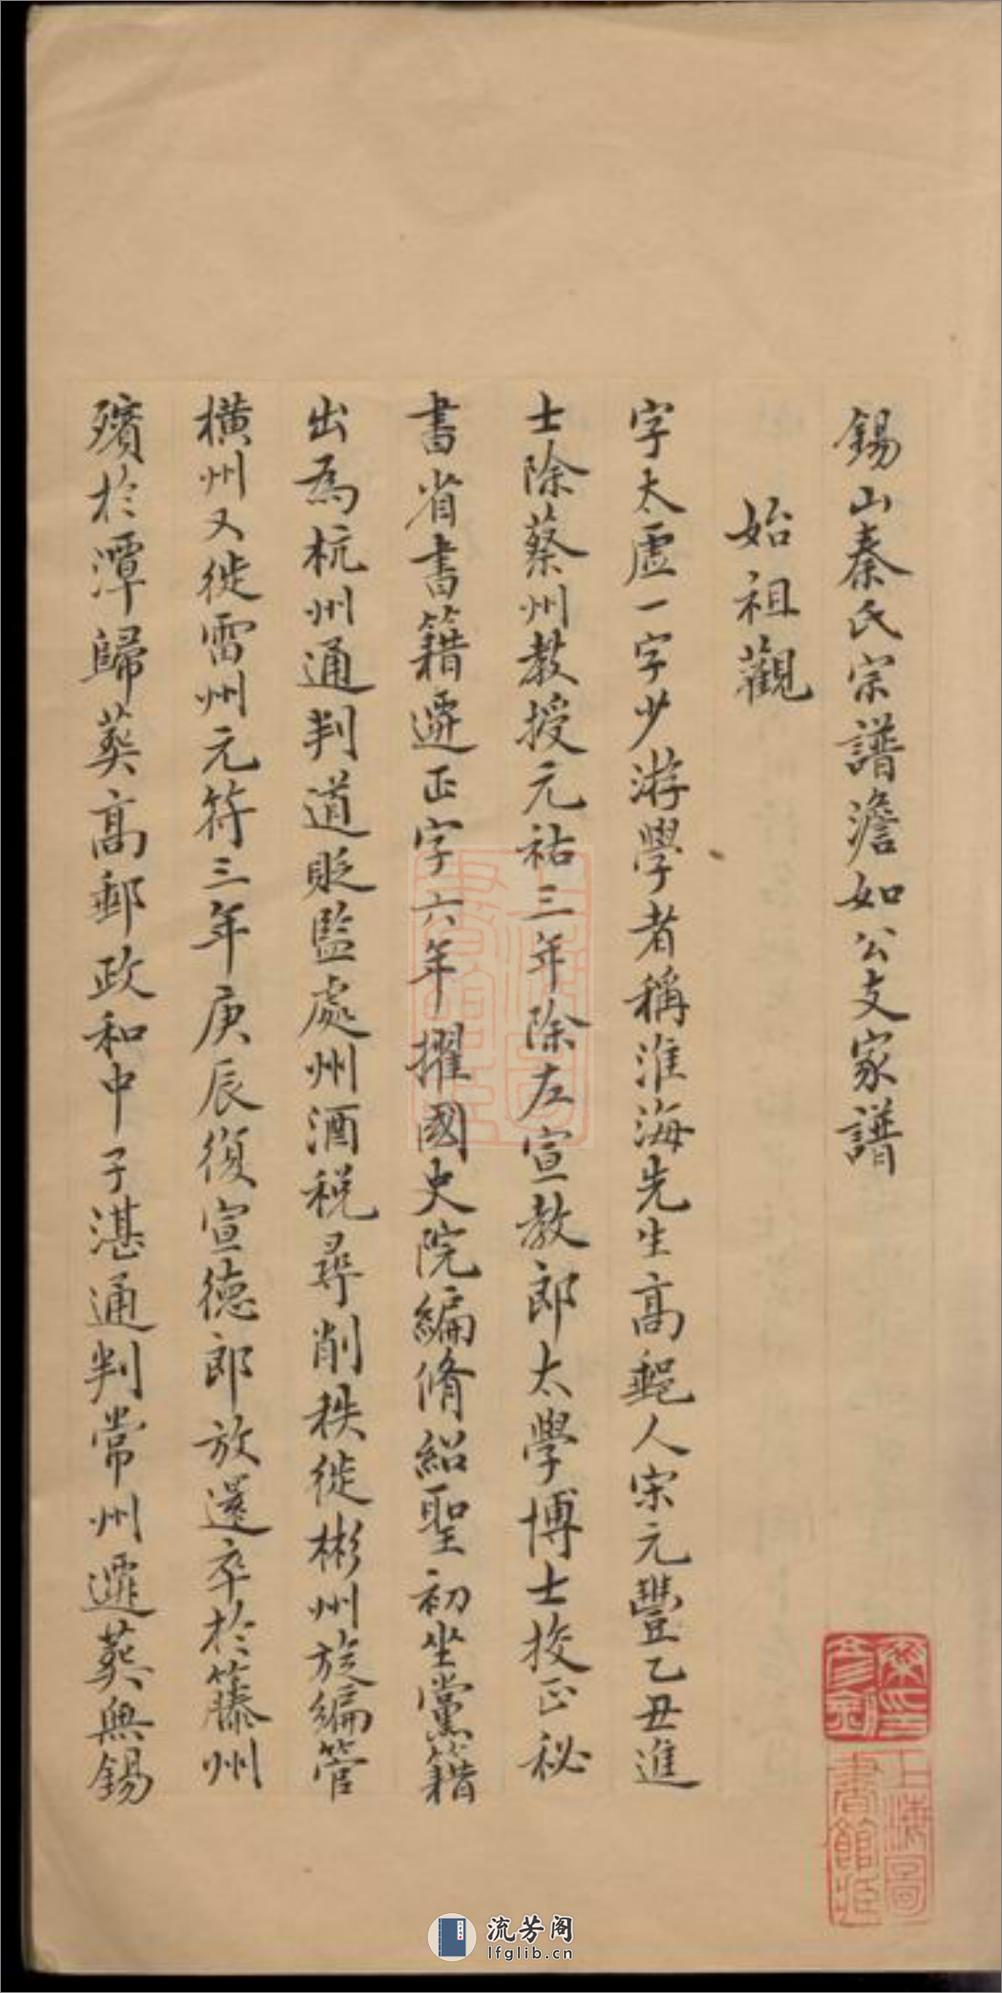 錫山秦氏宗譜澹如公支家譜
始祖觀
字太虛一字少游學者稱淮海先生高郵人宋元豐乙丑進
士除蔡州教授元祐三年除左宣教郎太學博士挍正秘
書省書籍遷正字六年擢國史院編脩紹聖初坐黨籍
出為杭州通判道貶監處州酒稅尋削秩徙彬州旋編管
橫州又徙雷州元符三年庚辰復宣德郎放還卒於籐州
殯於潭歸葬高郵政和中子湛通判常州遷葬無錫
上海圖書館藏
流芳阁
lfglib.cn